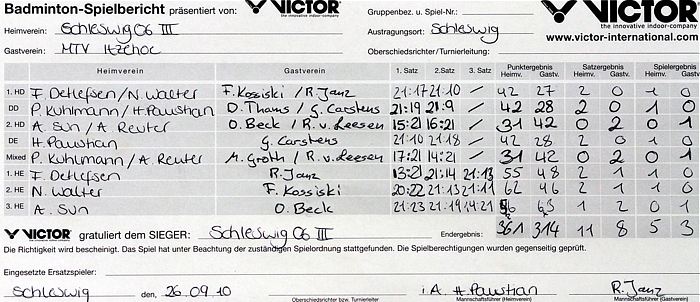 Badminton-Spielbericht präsentiert von: VICTOR the innovative indoor-company Gruppenbez. u. Spiel-Nr.: VICTOR the innovative indoor-company
Heimverein: Schleswig 06 III Austragungsort: Schleswig www.victor-international.com
Gastverein: MTV Itzehoe Oberschiedsrichter/Turnierleitung:
Heimverein Gastverein 1. Satz 2. Satz 3. Satz Punktergebnis Heimv. Gastv. Satzergebnis Heimv. Gastv. Spielergebnis Heimv. Gastv.
1. HD F. Detlefsen/N. Walter F. Kossiski/R. Janz 21:17 21:10 / 42 27 2 0 1 0
DD P. Kuhlmann/H. Pawstian D. Thams/G. Carstens 21:19 21:9 / 42 28 2 0 1 0
2. HD A. Sun/A. Reuter O. Beck/R. v. Leesen 15:21 16:21 / 31 42 0 2 0 1
DE H. Pawstian G. Carstens 21:10 21:18 / 42 28 2 0 1 0
Mixed P. Kuhlmann/A. Reuter M. Groth/R. v. Leesen 17:21 14:21 / 31 42 0 2 0 1
1. HE F. Detlefsen R. Janz 13:21 21:14 21:13 55 48 2 1 1 0
2. HE N. Walter F. Kossiski 20:22 21:13 21:11 62 46 2 1 1 0
3. HE A. Sun O. Beck 21:23 21:19 14:21 56 63 1 2 0 1
VICTOR gratuliert dem SIEGER: Schleswig 06 III Endergebnis: 361 314 11 8 5 3
Die Richtigkeit wird bescheinigt. Das Spiel hat unter Beachtung der zuständigen Spielordnung stattgefunden. Die Spielberechtigungen wurden gegenseitig geprüft.
Eingesetzte Ersatzspieler:
Schleswig den, 26.09.10 i.A. H. Pawstian R. Janz
Oberschiedsrichter bzw. Turnierleitung Mannschaftsführer (Heimverein) Mannschaftsführer (Gastverein)